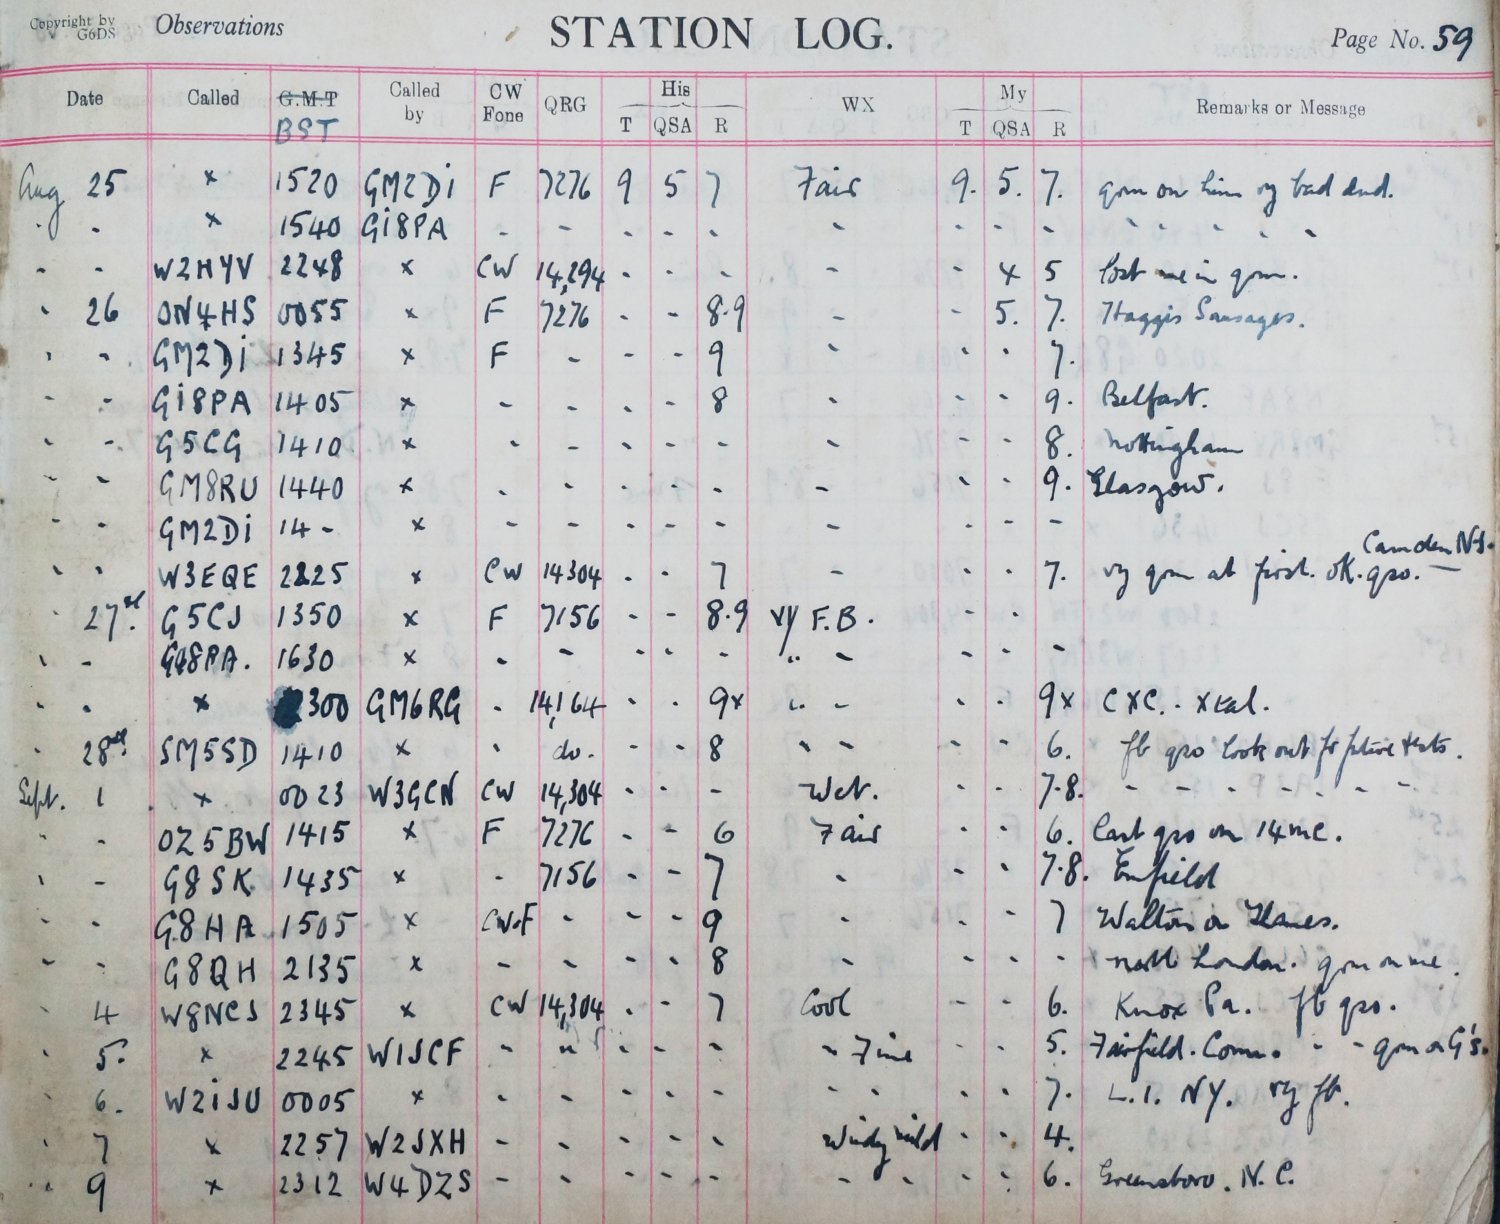 Copyright by G6DS Observations STATION LOG. Page No. 59
Date Called G.M.T BST Called by CW Fone QRG His T QSA R WX My T QSA R Remarks or Message
Aug 25 x 1520 GM2Di F 7276 9 5 7 Fair 9. 5. 7. qrm on him vy bad
. - x 1540 Gi8PA - - - - - - - - - - - - - -
- - W2HYV 2248 x CW 14,294 - - - - - 4 5 lost me in qrm.
- 26 ON4HS 0055 x F 7276 - - 8.9 - - 5. 7. Haggis Sausages.
- - GM2Di 1345 x F - - - 9 - - - 7.
- - Gi8PA 1405 x - - - - 8 - - - 9. Belfast.
- - G5CG 1410 x - - - - - - - - 8. Nottingham
- - GM8RU 1440 x - - - - - - - - 9. Glasgow.
- - GM2Di 14 - x - - - - - - - - -
Camden N.J.
- - W3EQE 2225 x CW 14304 - - 7 - - - 7. vy qrm at first. OK. qso. -
- 27 G5CJ 1350 x F 7156 - - 8.9 vy F.B. - -
- - 8PA. 1630 x - - - - - " - - - -
- - x 300 GM6RG - 14,164 - - 9x " - - - 9x CXC. - xtal.
- 28 SM5SD 1410 x - do. - - 8 - - - - 6. fb qso look out for future tests.
Sept. 1 x 0023 W3GCN CW 14,304 - - - Wet. - - 7-8. - - - - - - -
- - OZ5BW 1415 x F 7276 - - 6 Fair - - 6. last qso on 14mc.
- - G8SK 1435 x - 7156 - - 7 - - - 7.8. Enfield
- - G8HA 1505 x CW.F - - - 9 - - - 7 Walton on Thames.
- - G8QH 2135 x - - - - 8 - - - - North London. qrm on me.
- 4 W8NCJ 2345 x CW 14,304 - - 7 Cool - - 6. Knox Pa. fb qso.
- 5. x 2245 W1JCF - " - - - " Fine - - 5. Fairfield. Conn. - - qrm on G's.
- 6. W2iJU 0005 x - - - - - - - - - 7. L.I. NY. vy fb.
- 7 x 2257 W2JXH - - - - - Windy mild - - 4.
- 9 x 2312 W4DZS - - - - - - - - - - 6. Greensboro. N.C.